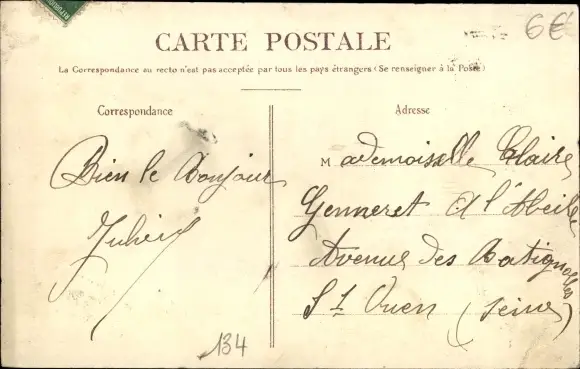 6€
CARTE POSTALE
La Correspondance au recto n'est pas acceptée par tous les pays étrangers (Se renseigner à la Poste)
Correspondance
Bien le Bonjour
134
Adresse
Mademoiselle Claire
Genneret A l'Abeille
Avenue des Batignolles
St Ouen (Seine)